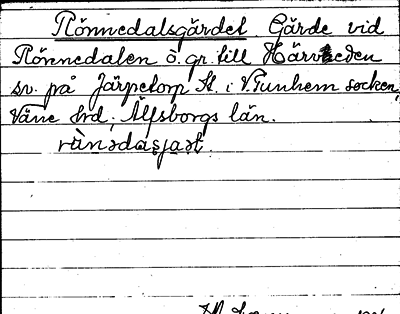 Rönnedalsgärdet. Gärde vid
Rönnedalen ö. gr. till Härvheden
sv. på Järpetorp St. i V. Tunhem socken,
Väne hrd, Älfsborgs län.
rànsdasjaʃt.